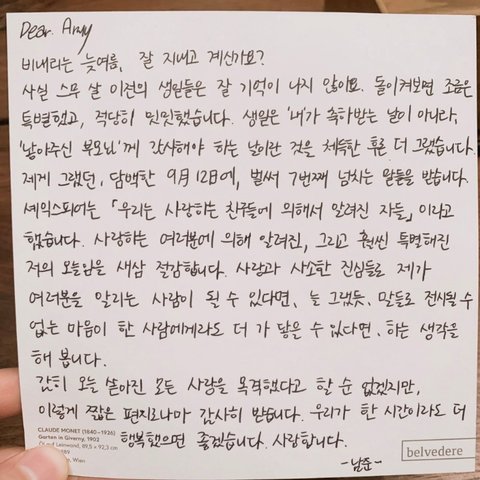 Dear. Army
비내리는 늦여름, 잘 지내고 계신가요?
사실 스무 살 이전의 생일들은 잘 기억이 나지 않아요. 돌이켜보면 조금은
특별했고, 적당히 밋밋했습니다. 생일은 '내가 축하받는 날이 아니라,
'낳아주신 부모님'께 감사해야 하는 날이란 것을 체득한 후론 더 그랬습니다.
제게 그랬던, 담백한 9月 12日에, 벌써 7번째 넘치는 말들을 받습니다.
셰익스피어는 「우리는 사랑하는 친구들에 의해서 알려진 자들」이라고
했습니다. 사랑하는 여러분에 의해 알려진, 그리고 훨씬 특별해진
저의 오늘임을 새삼 절감합니다. 사랑과 사소한 진심들로 제가
여러분을 알리는 사람이 될 수 있다면, 늘 그랬듯, 말들로 전시될 수
없는 마음이 한 사람에게라도 더 가 닿을 수 있다면, 하는 생각을
해 봅니다.
감히 오늘 쏟아진 모든 사랑을 목격했다고 할 순 없겠지만,
이렇게 짧은 편지로나마 감사히 받습니다. 우리가 한 시간이라도 더
행복했으면 좋겠습니다. 사랑합니다.
-남준-
CLAUDE MONET (1840–1926)
Garten in Giverny, 1902
Öl auf Leinwand, 89,5 × 92,3 cm
3889
Wien
belvedere